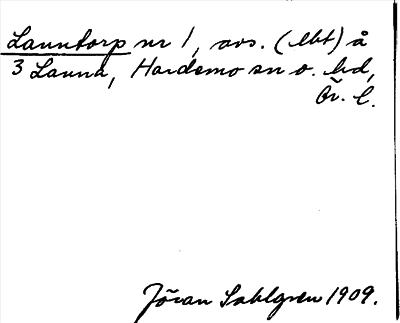 Lanntorp nr 1, avs. (lht) å
3 Lanna, Hardemo sn o. hd,
Ör. l.
Jöran Sahlgren 1909.